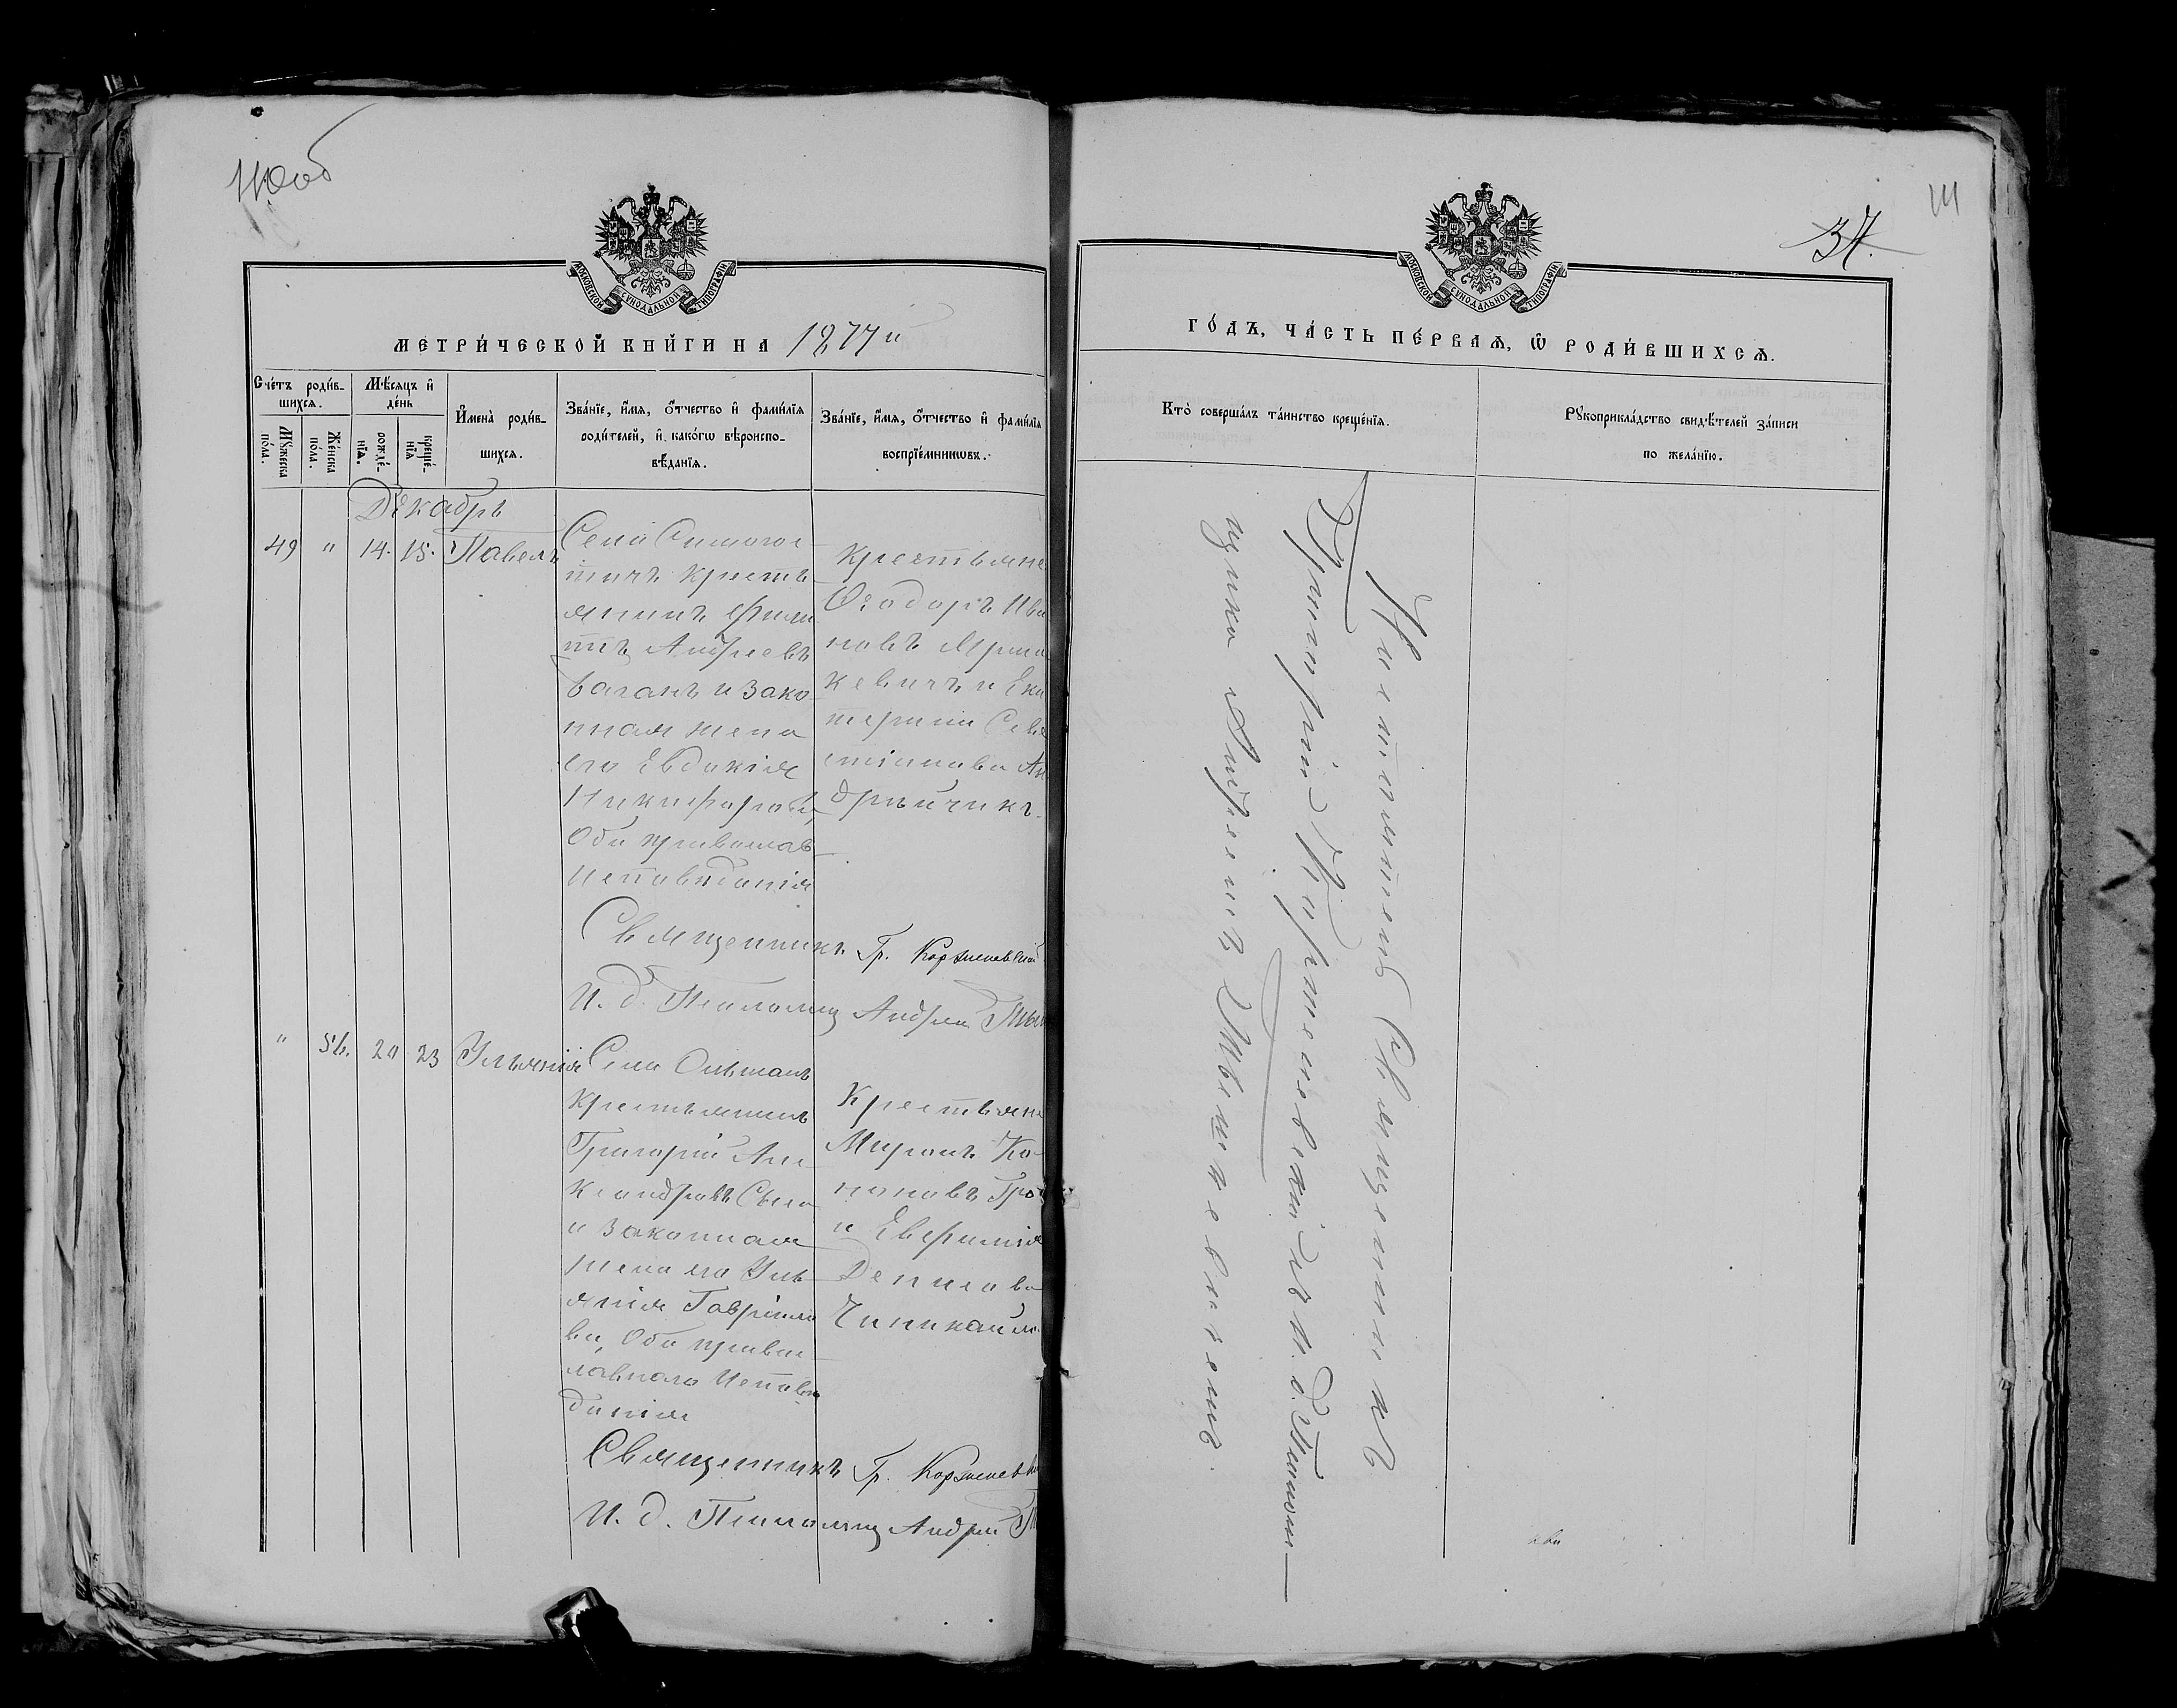 110об
МОСКОВСКОЙ СѴНОДАЛЬНОЙ ТИПОГРАФІИ
МЕТРИ́ЧЕСКОЙ КНИ́ГИ НА 1877й
Сче́тъ роди́в-
шихсѧ.
Мѣ́сяцъ и҆
де́нь
Му́жеска по́ла.
Же́нска по́ла.
рожде́-нїѧ.
креще́-нїѧ
И҆мена̀ роди́в-
шихсѧ.
Зва́нїе, и҆́мѧ, ѻ҆́тчество и҆ фамі́лїѧ
роди́телей, и҆ како́гѡ вѣроиспо-
вѣ́данїѧ.
Зва́нїе, и҆́мѧ, ѻ҆́тчество и҆ фамі́лїѧ
воспрїе́мникѡвъ.
Декабрь
49 " 14. 15. Павелъ
крестъ
янинъ Фили
ппъ Андреевъ
и зако
нная жена
его Евдокія
Никифорова,
Оба православ
Исповѣданія
Крестьяне
Ѳеодоръ Ива
новъ
кевичъ и Ека
терина Сева
стіанова Ан
дрейчикъ.
Священникъ Гр. Корженевскій
И. д. Псаломщ Андрей
" 56. 20 23 Ульянія
Села Ольшанъ
Крестьянинъ
Григорій Але
ксандровъ
и законная
жена его Уль
янія Гавріило
ва, Оба право
славнаго Исповѣ
данія
Крестьяне
Миронъ Ко-
ноновъ
и Евфимія
Денисова
Священникъ Гр. Корженев
И. д. Псаломщ Андрей
111
37.
МОСКОВСКОЙ СѴНОДАЛЬНОЙ ТИПОГРАФІИ
ГО́ДЪ, ЧА́СТЬ ПЕ́РВАѦ, Ѽ РОДИ́ВШИХСѦ.
Кто̀ соверша́лъ та́инство креще́нїѧ.
Рꙋкоприкла́дство свидѣ́телей за́писи
по жела́нїю.
Настоятель Священникъ
Григорій Корженевскій съ и. д. Псалом
щика Андреемъ